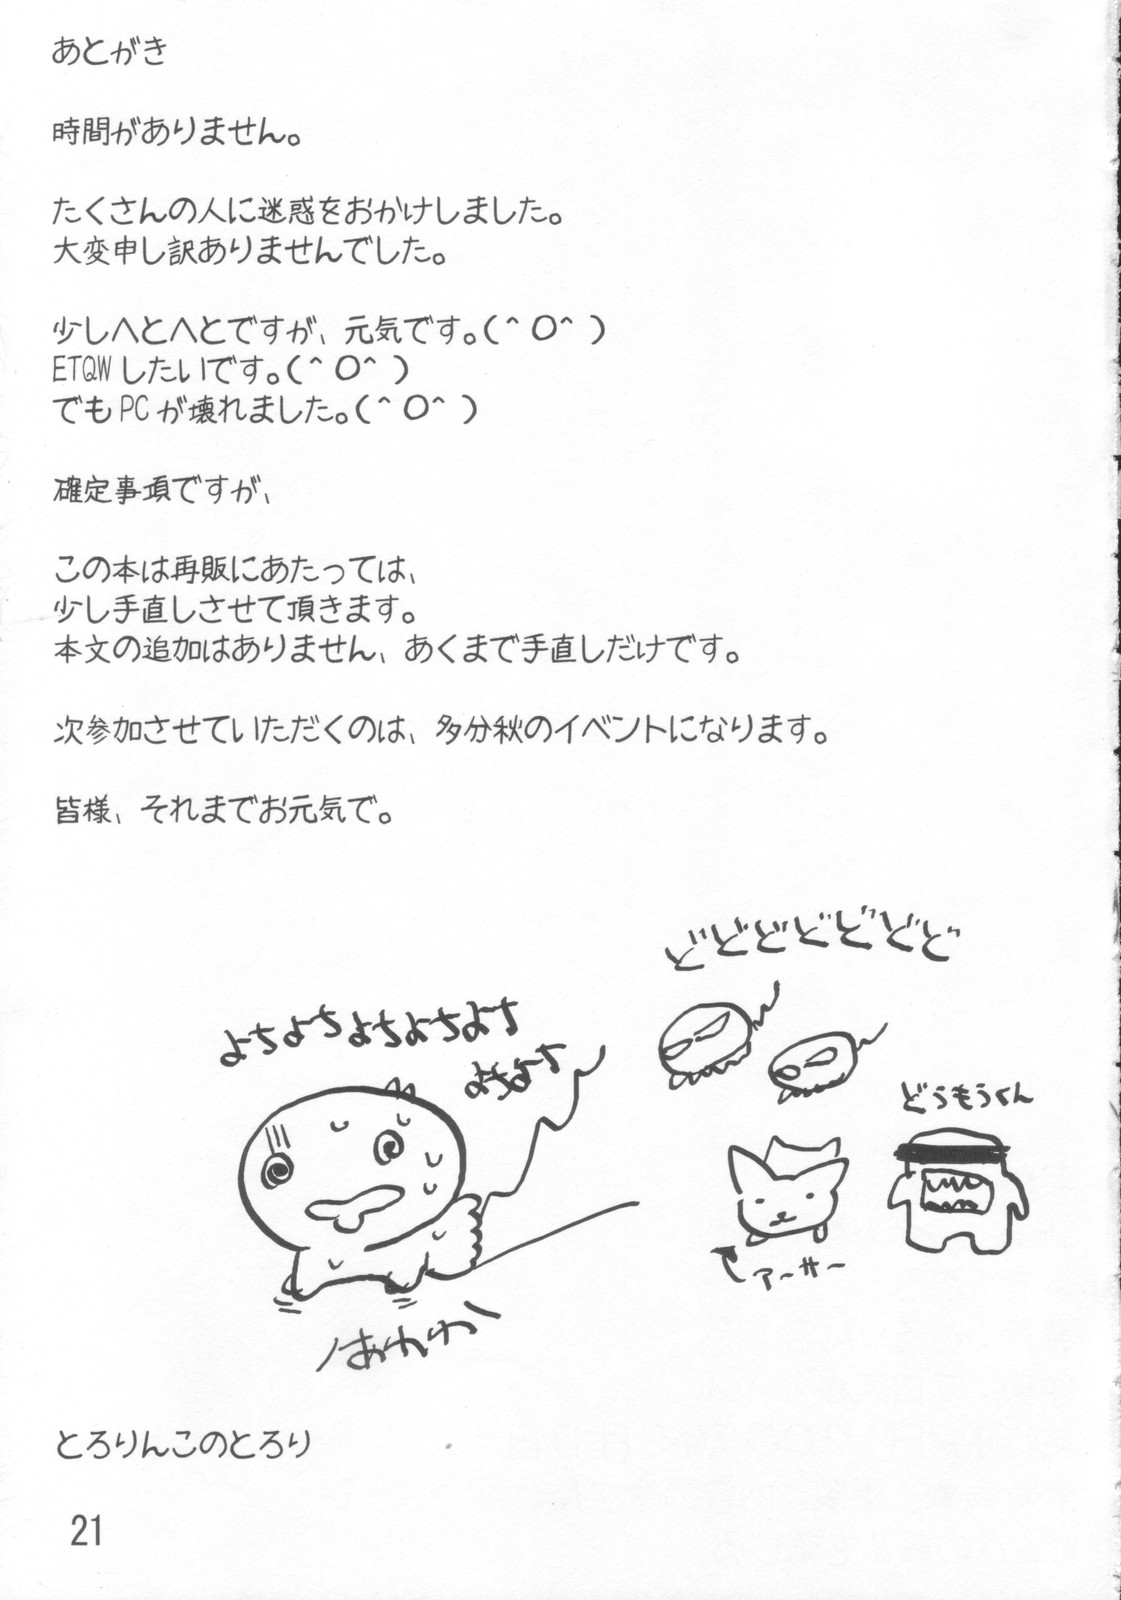 あとがき
時間がありません。
たくさんの人に迷惑をおかけしました。
大変申し訳ありませんでした。
少しへとへとですが、元気です。(＾O＾)
ETQWしたいです。(＾O＾)
でもPCが壊れました。(＾O＾)
確定事項ですが、
この本は再販にあたっては、
少し手直しさせて頂きます。
本文の追加はありません、あくまで手直しだけです。
次参加させていただくのは、多分秋のイベントになります。
皆様、それまでお元気で。
どどどどどどど
よちよちよちよちよち
よちよち
どうもうくん
アーサー
とろりんこのとろり
21